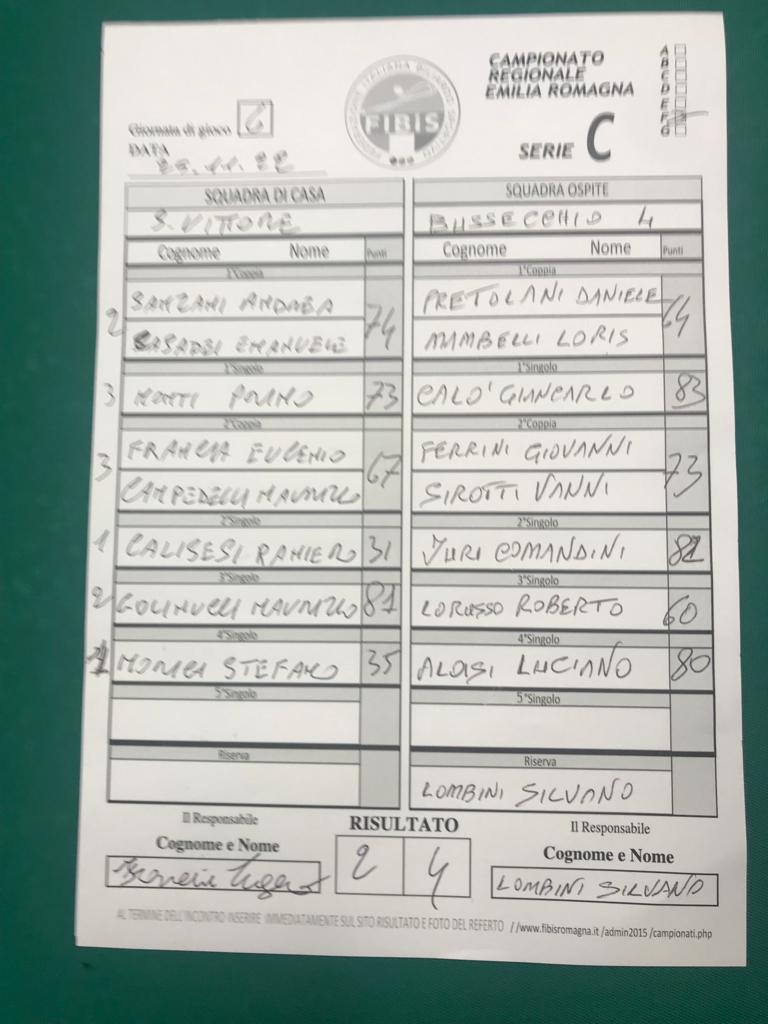 CAMPIONATO
REGIONALE
EMILIA ROMAGNA
SERIE C
A
B
C
D
E
F
G
FEDERAZIONE ITALIANA BILIARDO SPORTIVO
FIBIS
Giornata di gioco 6
DATA
SQUADRA DI CASA
S. VITTORE
Cognome Nome Punti
1°Coppia
SANZANI ANDREA
2 74
CASADEI EMANUELE
1°Singolo
3 73
2°Coppia
FRANCIA EUGENIO
3 67
CAMPEDELLI MAURIZIO
2°Singolo
1 CALISESI RANIERO 31
3°Singolo
2 GOLINUCCI MAURIZIO 81
4°Singolo
1 STEFANO 35
5°Singolo
Riserva
SQUADRA OSPITE
BUSSECCHIO 4
Cognome Nome Punti
1°Coppia
PRETOLANI DANIELE
64
MAMBELLI LORIS
1°Singolo
CALO' GIANCARLO 83
2°Coppia
FERRINI GIOVANNI
73
SIROTTI VANNI
2°Singolo
YURI COMANDINI 82
3°Singolo
LORUSSO ROBERTO 60
4°Singolo
ALOISI LUCIANO 80
5°Singolo
Riserva
LOMBINI SILVANO
Il Responsabile
Cognome e Nome
RISULTATO
2 4
Il Responsabile
Cognome e Nome
LOMBINI SILVANO
AL TERMINE DELL'INCONTRO INSERIRE IMMEDIATAMENTE SUL SITO RISULTATO E FOTO DEL REFERTO //www.fibisromagna.it /admin2015 /campionati.php